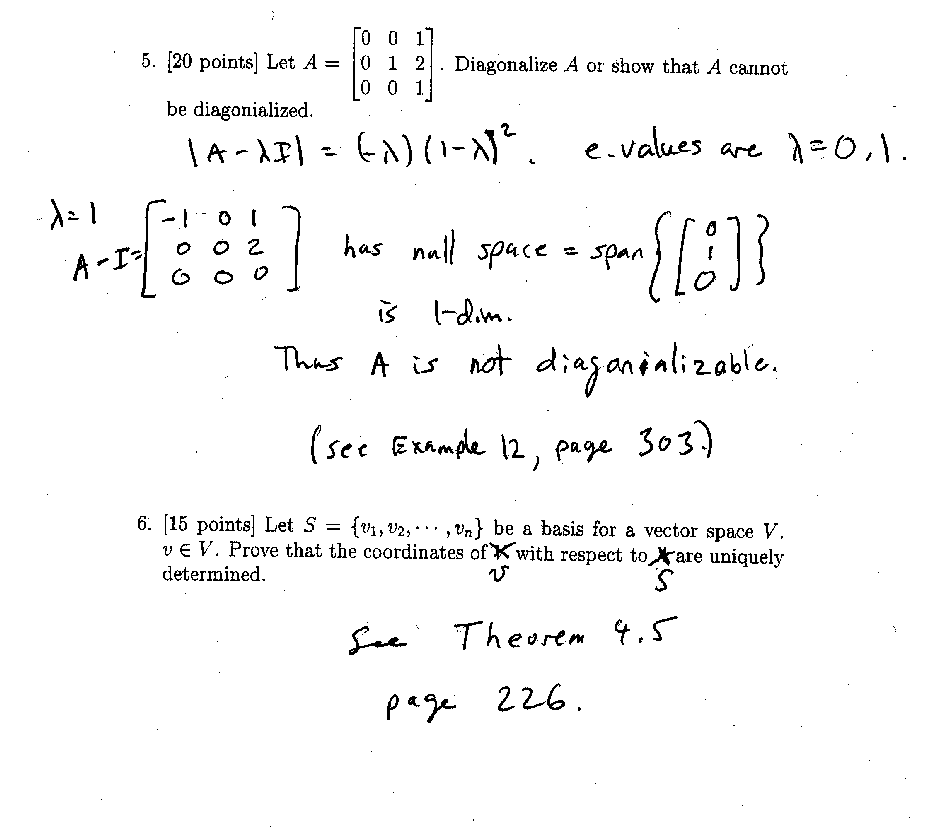 5. [20 points] Let A = [0 0 1; 0 1 2; 0 0 1]. Diagonalize A or show that A cannot
be diagonialized.
|A-λI| = (-λ)(1-λ)². e.values are λ=0,1.
λ=1
A-I= [-1 0 1; 0 0 2; 0 0 0] has null space = span {[0; 1; 0]}
is 1-dim.
Thus A is not diagonalizable.
(see Example 12, page 303.)
6. [15 points] Let S = {v₁, v₂, ⋯ , vₙ} be a basis for a vector space V.
v ∈ V. Prove that the coordinates of with respect to are uniquely
determined. v S
See Theorem 4.5
page 226.